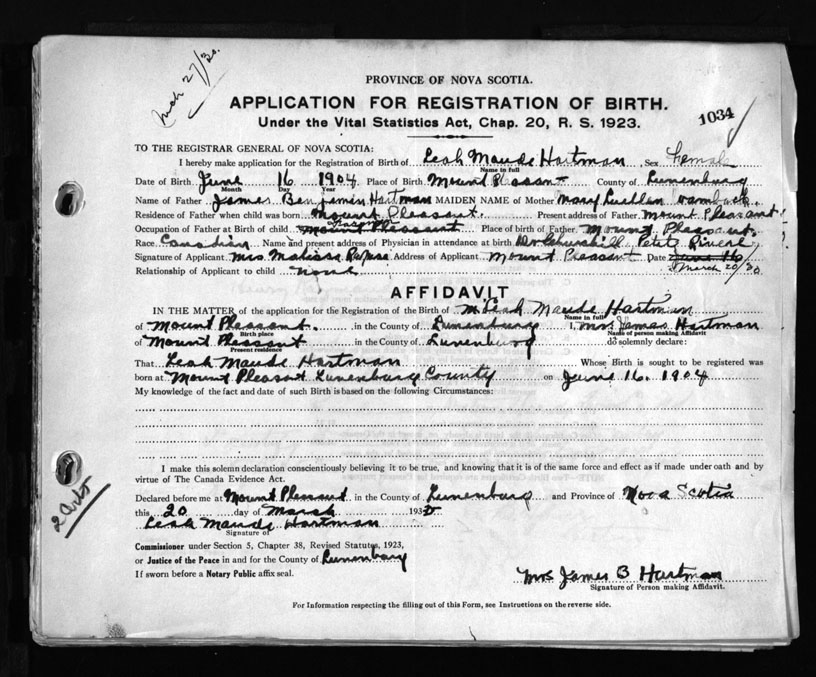 Mch 27/30.
PROVINCE OF NOVA SCOTIA.
APPLICATION FOR REGISTRATION OF BIRTH.
Under the Vital Statistics Act, Chap. 20, R. S. 1923.
1034
TO THE REGISTRAR GENERAL OF NOVA SCOTIA:
I hereby make application for the Registration of Birth of Leah Maude Hartman Sex Female
Name in full
Date of Birth June 16 1904 Place of Birth Mount Pleasant County of Lunenburg
Month Day Year
Name of Father James Benjamin Hartman MAIDEN NAME of Mother Mary
Residence of Father when child was born Mount Pleasant. Present address of Father Mount Pleasant
Occupation of Father at Birth of child Mount Pleasant Place of birth of Father Mount Pleasant.
Race Canadian Name and present address of Physician in attendance at birth Dr Churchill Petite Riviere
Signature of Applicant Mrs Address of Applicant Mount Pleasant Date June 16
March 20/30
Relationship of Applicant to child none
AFFIDAVIT
IN THE MATTER of the application for the Registration of the Birth of Leah Maude Hartman
Name in full
of Mount Pleasant. in the County of Lunenburg I, Mrs James Hartman
Birth place Name of person making Affidavit
of Mount Pleasant in the County of Lunenburg do solemnly declare:
Present residence
That Leah Maude Hartman Whose Birth is sought to be registered was
born at Mount Pleasant Lunenburg County on June 16. 1904
My knowledge of the fact and date of such Birth is based on the following Circumstances:
I make this solemn declaration conscientiously believing it to be true, and knowing that it is of the same force and effect as if made under oath and by
virtue of The Canada Evidence Act.
Declared before me at Mount Pleasant in the County of Lunenburg and Province of Nova Scotia
this 20 day of March 1930
Leah Maude Hartman
Signature of
Commissioner under Section 5, Chapter 38, Revised Statutes, 1923,
or Justice of the Peace in and for the County of Lunenburg
If sworn before a Notary Public affix seal.
Mrs James B Hartman
Signature of Person making Affidavit.
For Information respecting the filling out of this Form, see Instructions on the reverse side.